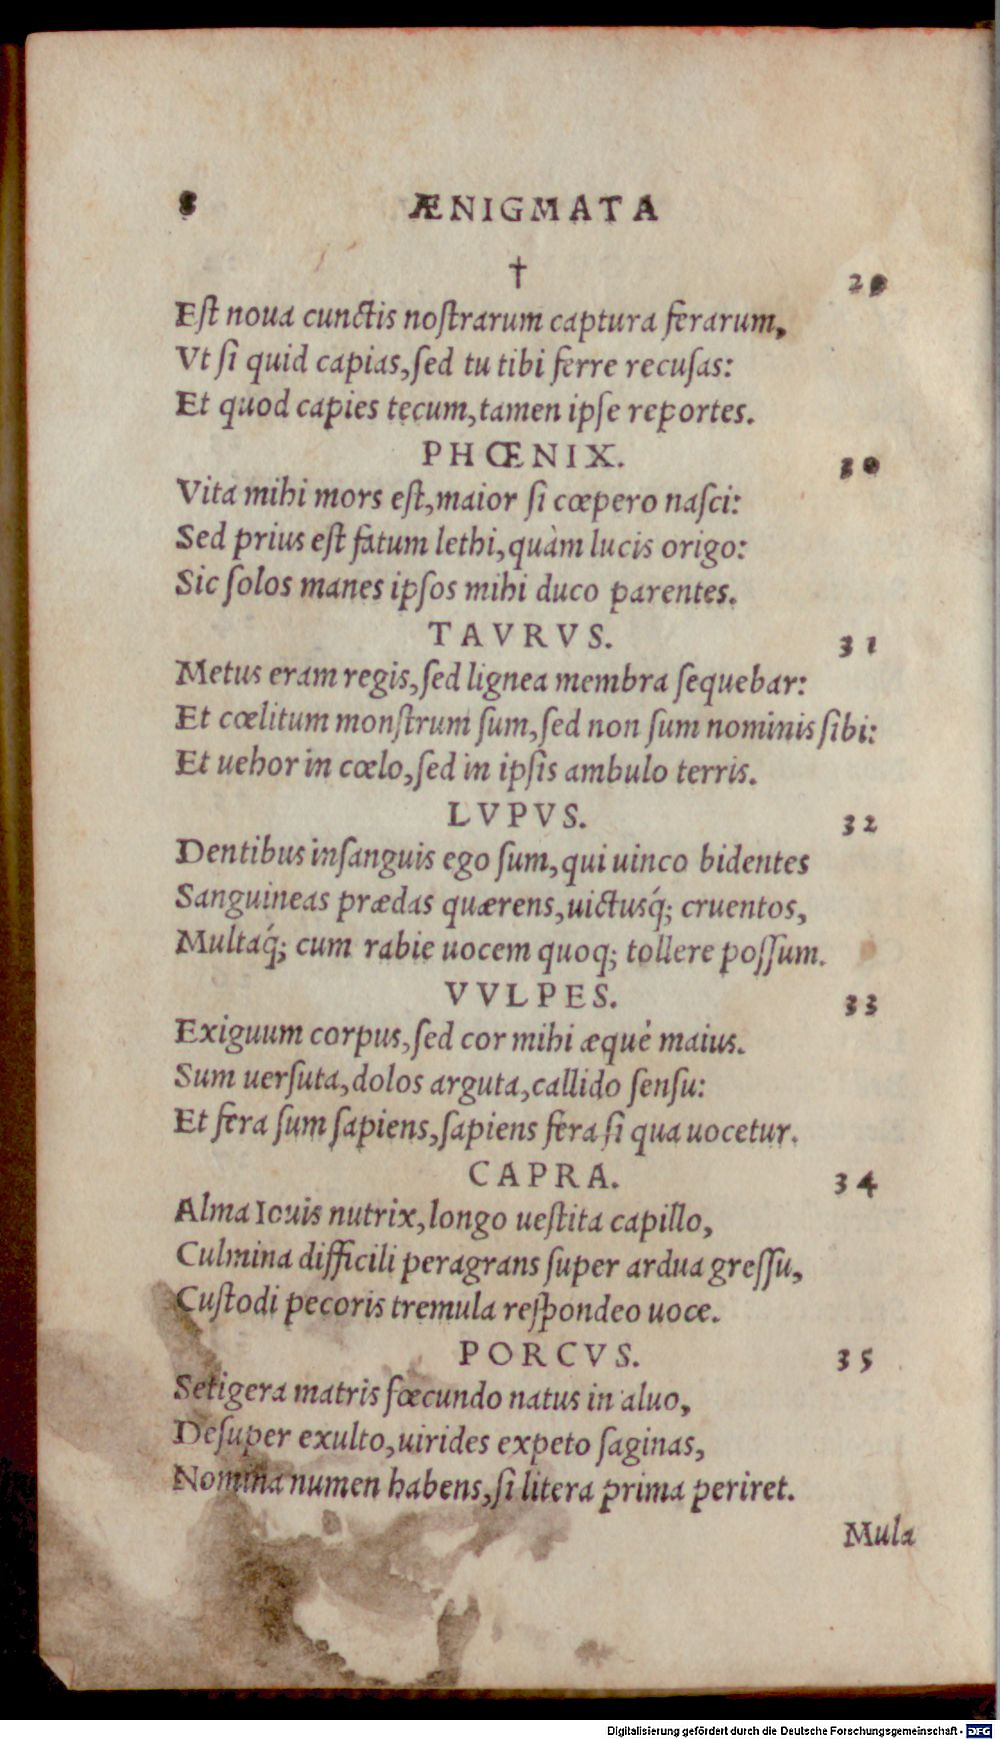 8 ÆNIGMATA
† 29
Eſt noua cunctis noſtrarum captura ferarum,
Vt ſi quid capias, ſed tu tibi ferre recuſas:
Et quod capies tecum, tamen ipſe reportes.
PHŒNIX. 30
Vita mihi mors eſt, maior ſi cœpero naſci:
Sed prius eſt fatum lethi, quàm lucis origo:
Sic ſolos manes ipſos mihi duco parentes.
TAVRVS. 31
Metus eram regis, ſed lignea membra ſequebar:
Et cœlitum monſtrum ſum, ſed non ſum nominis ſibi:
Et uehor in cœlo, ſed in ipſis ambulo terris.
LVPVS. 32
Dentibus inſanguis ego ſum, qui uinco bidentes
Sanguineas prædas quærens, uictusq́; cruentos,
Multaq́; cum rabie uocem quoq; tollere poſſum.
VVLPES. 33
Exiguum corpus, ſed cor mihi æquè maius.
Sum uerſuta, dolos arguta, callido ſenſu:
Et fera ſum ſapiens, ſapiens fera ſi qua uocetur.
CAPRA. 34
Alma Iouis nutrix, longo ueſtita capillo,
Culmina difficili peragrans ſuper ardua greſſu,
Cuſtodi pecoris tremula reſpondeo uoce.
PORCVS. 35
Setigera matris fœcundo natus in aluo,
Deſuper exulto, uirides expeto ſaginas,
Nomina numen habens, ſi litera prima periret.
Mula
Digitalisierung gefördert durch die Deutsche Forschungsgemeinschaft - DFG